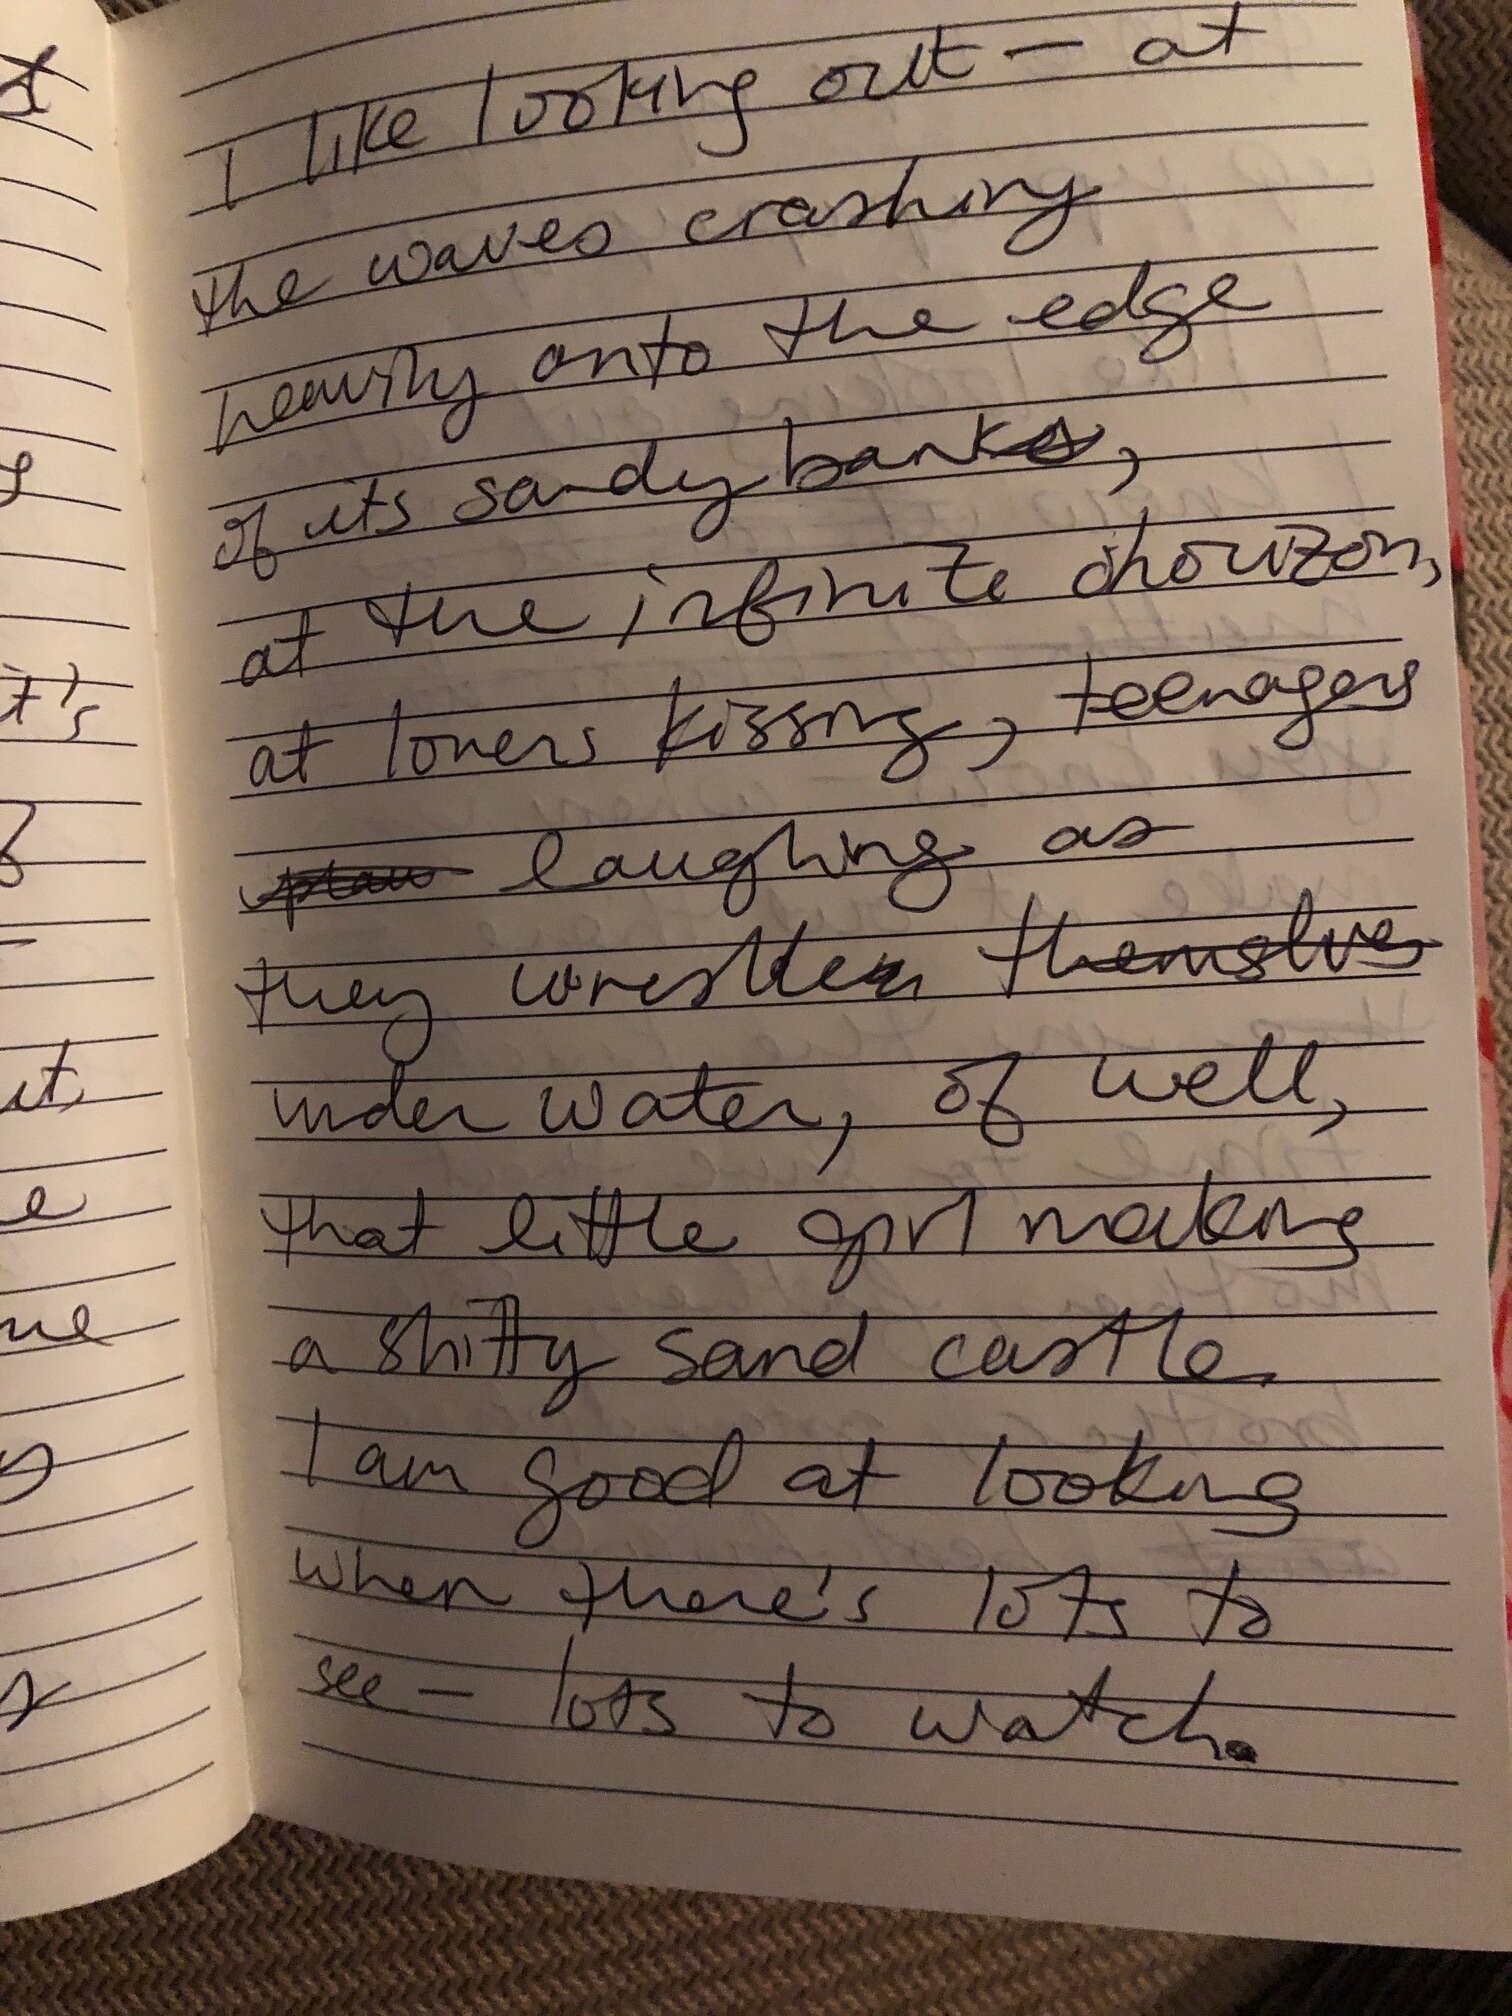 I like looking out – at
the waves crashing
heavily onto the edge
of its sandy bank,
at the infinite horizon,
at lovers kissing, teenagers
laughing as
they wrestle themslves
under water, of well,
that little girl making
a shitty sand castle.
I am good at looking
when there's lots to
see – lots to watch.